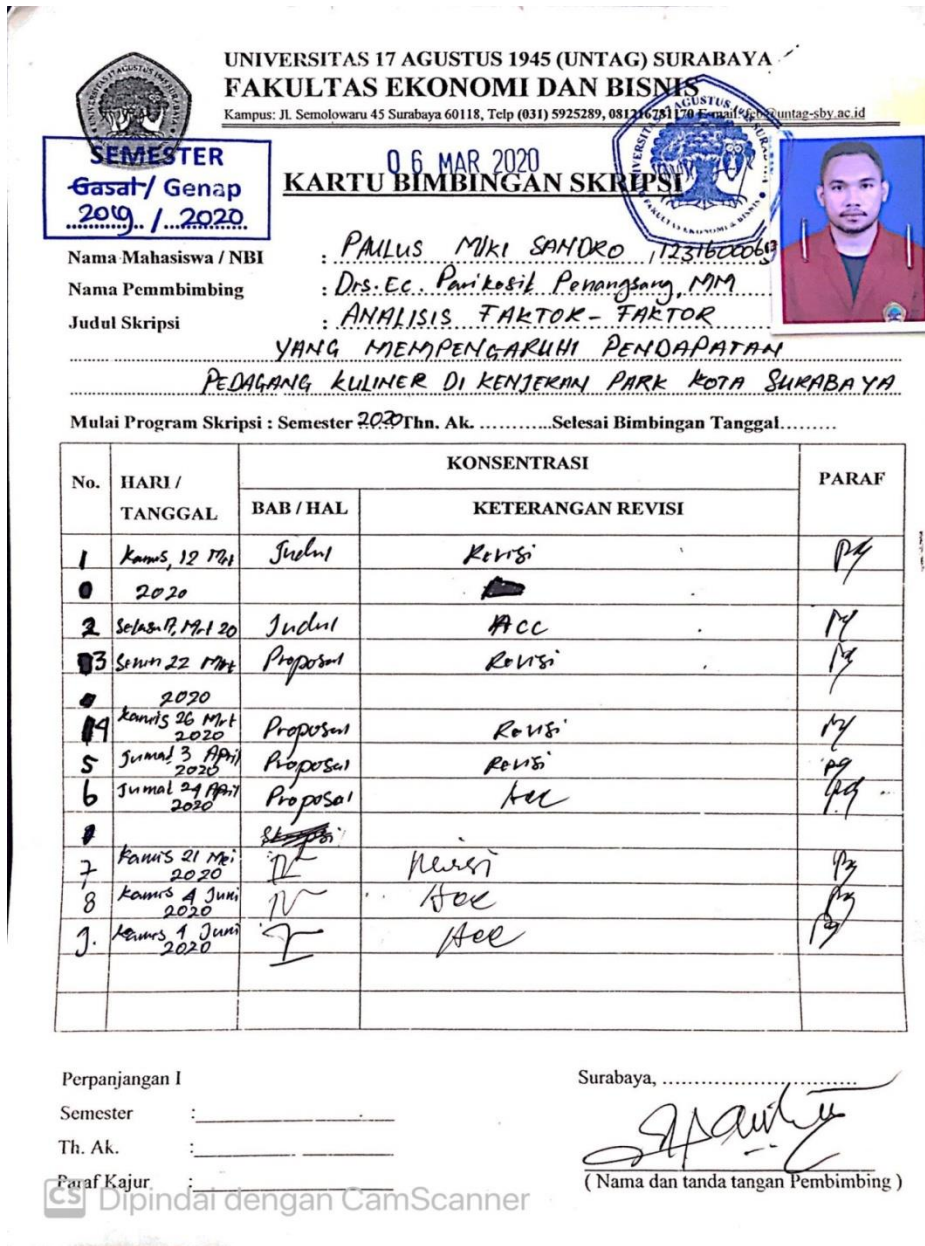 UNIVERSITAS 17 AGUSTUS 1945 (UNTAG) SURABAYA
FAKULTAS EKONOMI DAN BISNIS
Kampus: Jl. Semolowaru 45 Surabaya 60118, Telp (031) 5925289, 081216781170 E-mail: feb@untag-sby.ac.id
SEMESTER
Gasal / Genap
2019 / 2020
06 MAR 2020
KARTU BIMBINGAN SKRIPSI
Nama Mahasiswa / NBI : PAULUS MIKI SANDRO
Nama Pemmbimbing : Drs. Ec. Parikesit Penangsang, MM
Judul Skripsi : ANALISIS FAKTOR-FAKTOR
YANG MEMPENGARUHI PENDAPATAN
PEDAGANG KULINER DI KENJERAN PARK KOTA SURABAYA
Mulai Program Skripsi : Semester 2020 Thn. Ak. ............Selesai Bimbingan Tanggal.........
No. HARI / TANGGAL KONSENTRASI PARAF
BAB / HAL KETERANGAN REVISI
1 Kamis, 12 Mrt 2020 Judul Revisi
2 Selasa 17, Mrt 20 Judul ACC
3 Senin 22 Mrt 2020 Proposal Revisi
4 Kamis 26 Mrt 2020 Proposal Revisi
5 Jumat 3 April 2020 Proposal Revisi
6 Jumat 24 April 2020 Proposal Acc
Skripsi
7 Kamis 21 Mei 2020 Revisi
8 Kamis 4 Juni 2020 IV Acc
9. Kamis 4 Juni 2020 Acc
Perpanjangan I
Semester :
Th. Ak. :
Paraf Kajur :
Surabaya, ................................
( Nama dan tanda tangan Pembimbing )
CS Dipindai dengan CamScanner